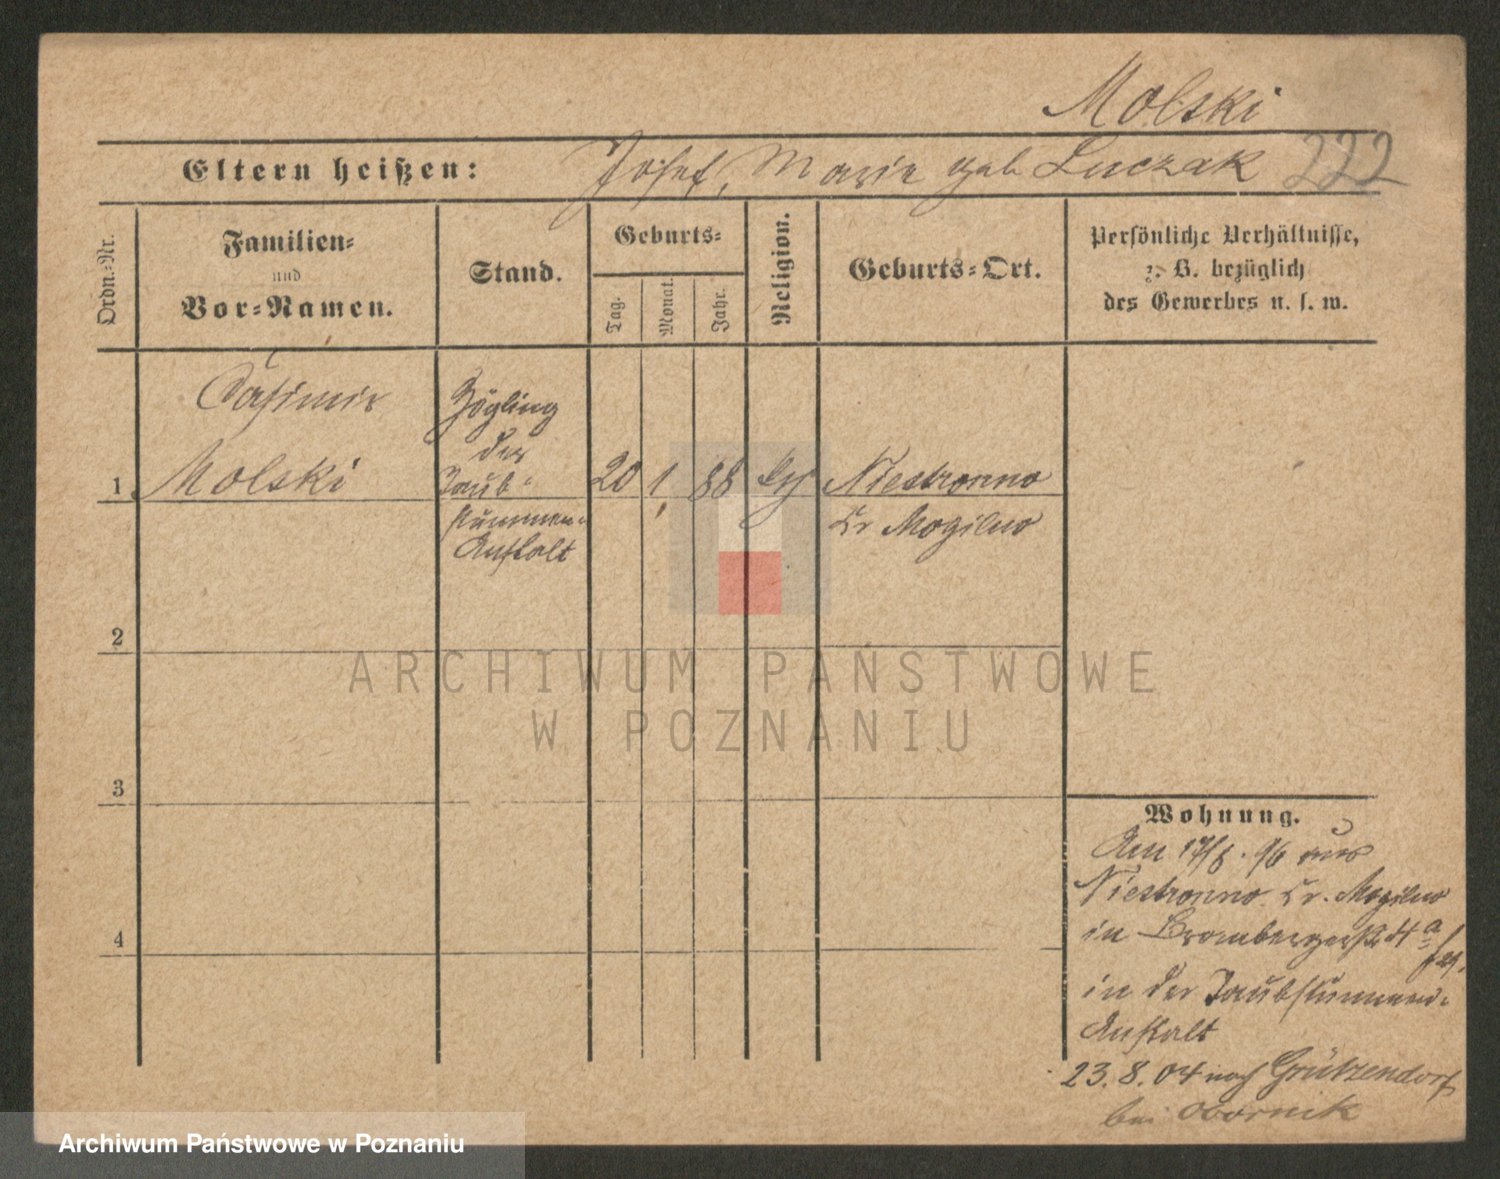 Molski
Eltern heißen: Josef, Marie geb Luczak 222
Ordn.-Nr.
Familien-
und
Vor-Namen.
Stand.
Geburts-
Tag.
Monat.
Jahr.
Religion.
Geburts-Ort.
Persönliche Verhältnisse,
z. B. bezüglich
des Gewerbes u. s. w.
Casimir
Zögling
der
1 Molski
Taub-
20 1. 88
Niestronno
stummen-
Anstalt
Kr Mogilno
2
3
4
Wohnung.
Am 17/8. 96 aus
Niestronno Kr. Mogilno
in Brombergerstr 4a
in der Taubstummen-
Anstalt
23. 8. 04 nach Grützendorf
bei Obornik
ARCHIWUM PAŃSTWOWE
W POZNANIU
Archiwum Państwowe w Poznaniu